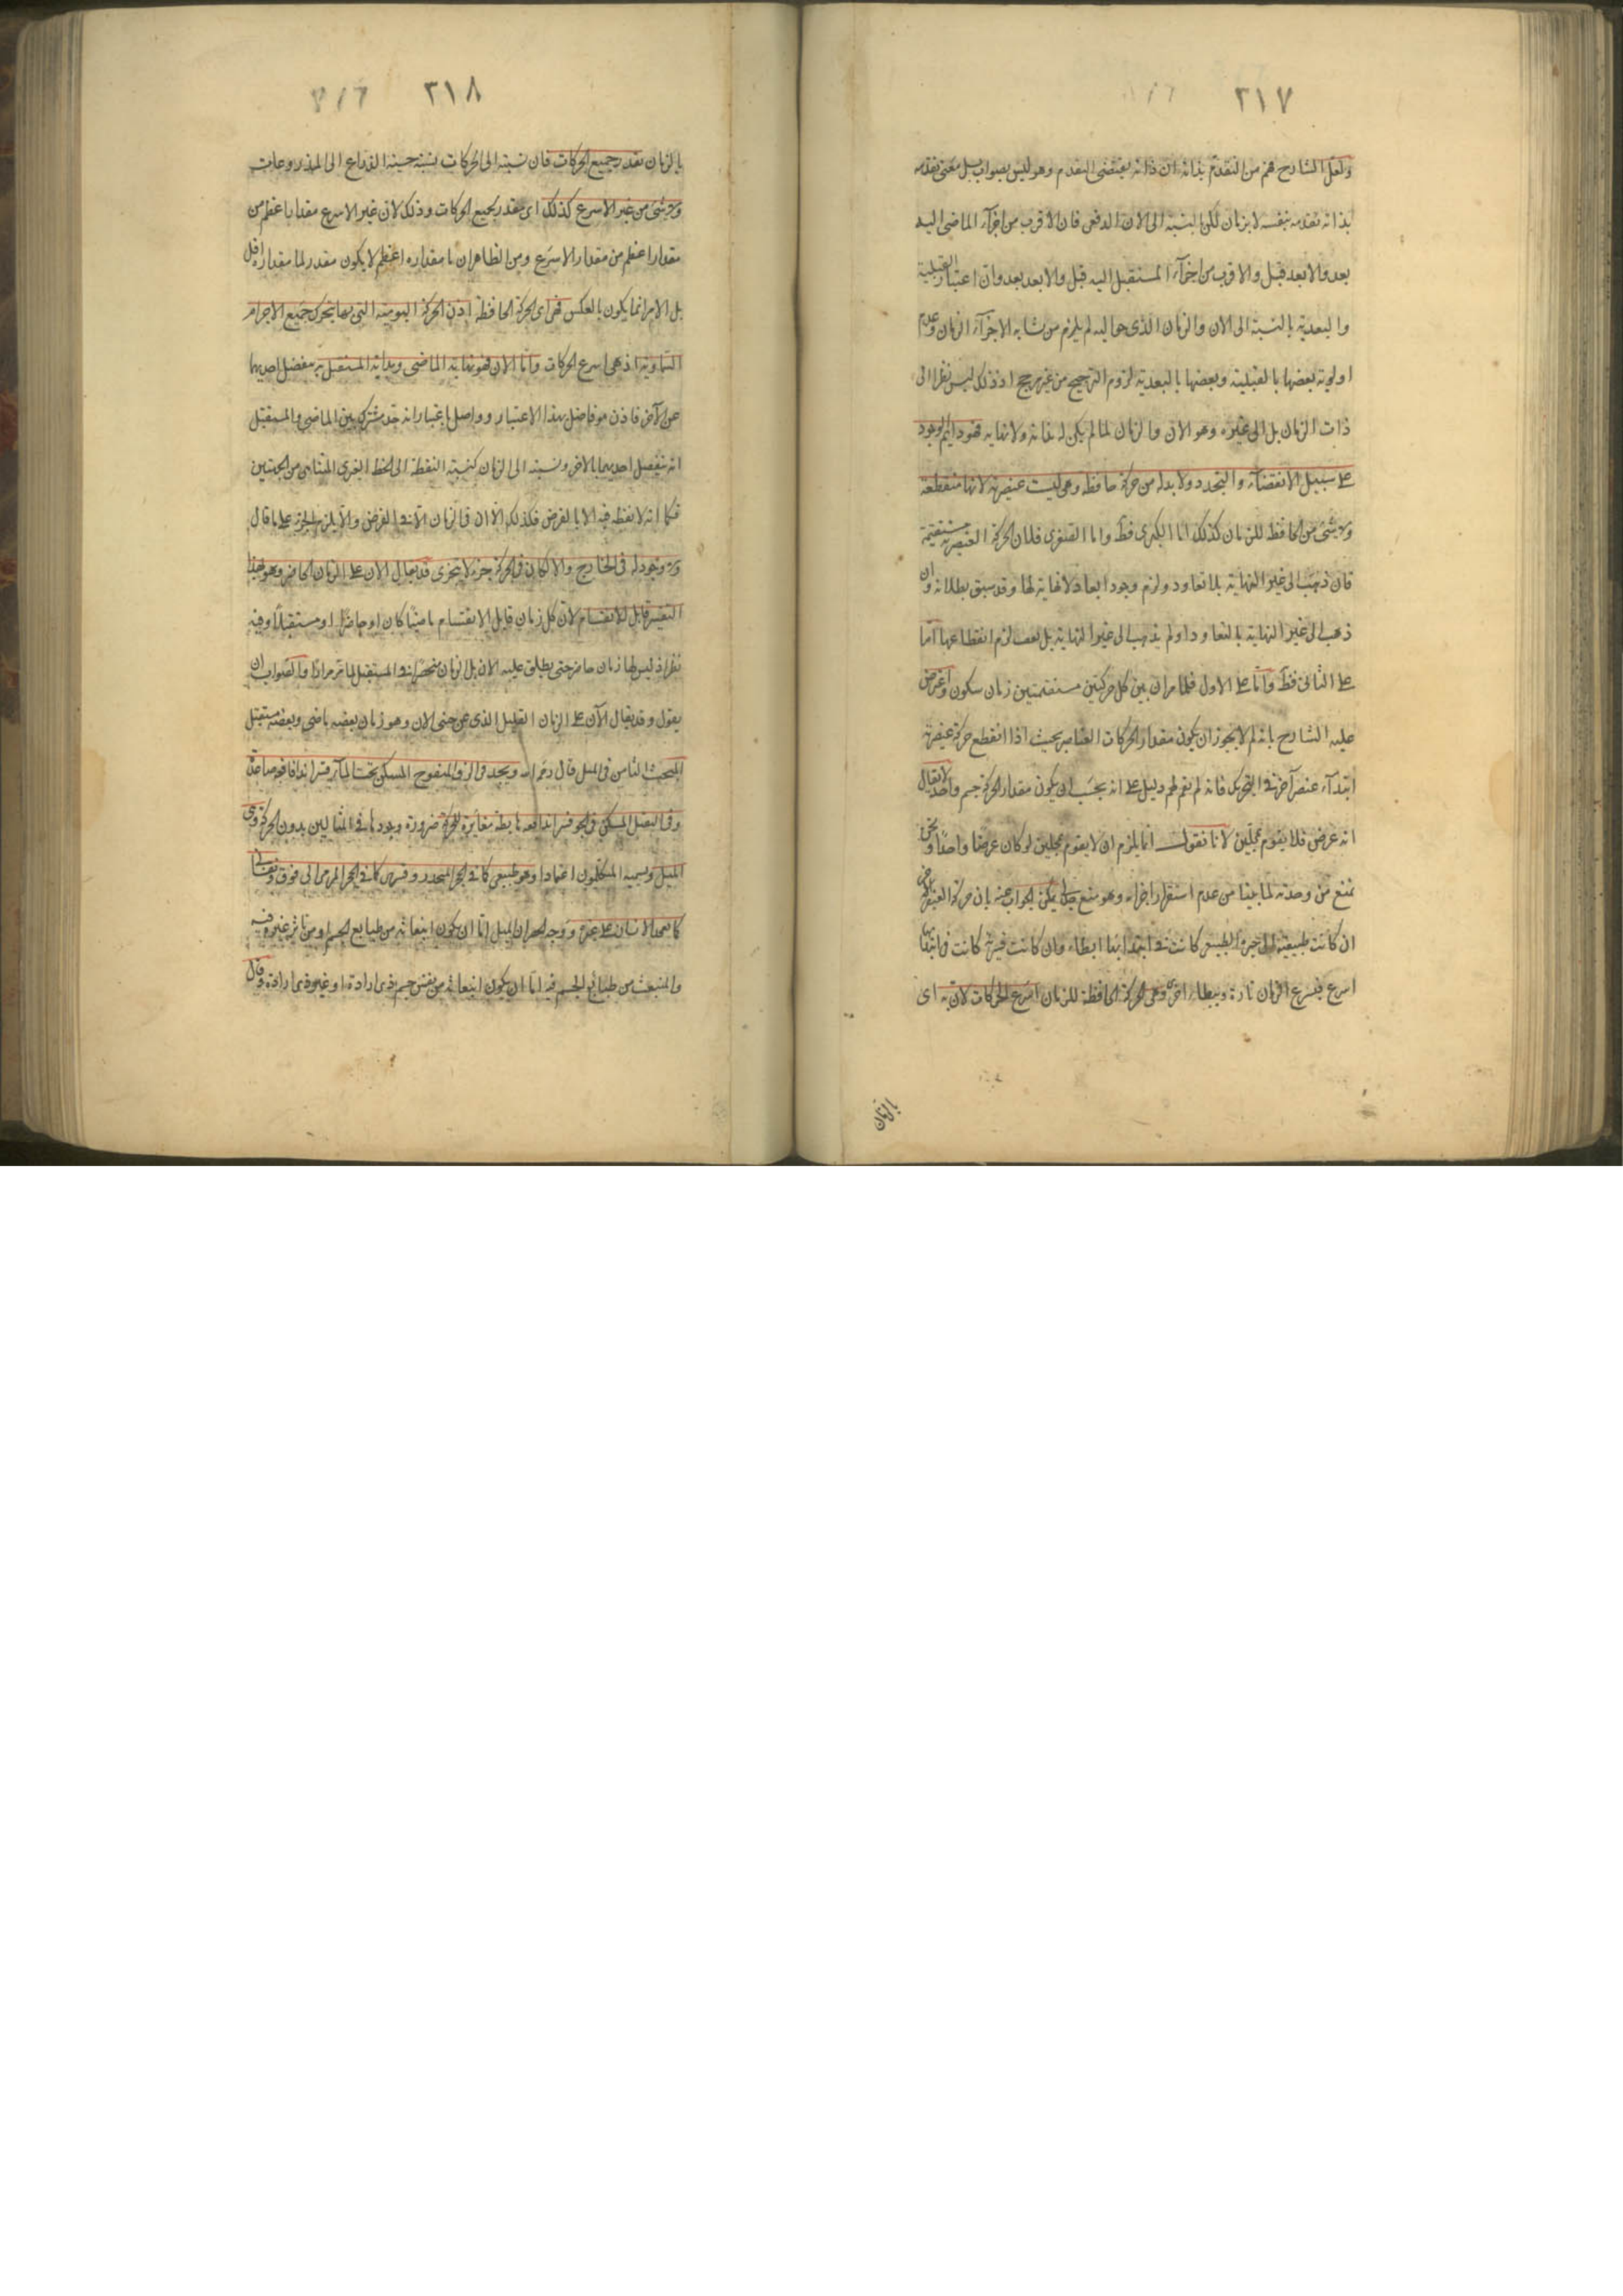 ٢١٧
ولعل الشارح فهم من التقدم بذاته ان ذاته يقتضى التقدم وهو ليس بصواب بل معنى تقدمه
بذاته تقدمه بنفسه لا بزمان لكن بالنسبة الى الآن الدفعى فان الاقرب من اجزآء الماضى اليه
بعد والابعد قبل والاقرب من اجزآء المستقبل اليه قبل والابعد بعد وان اعتبار القبلية
والبعدية بالنسبة الى الان والزمان الذى حواليه لم يلزم من تشابه الاجزآء الزمان وعدم
اولوية بعضها بالقبلية وبعضها بالبعدية لزوم الترجيح من غير مرجح اذ ذلك ليس نظرا الى
ذات الزمان بل الى غيره وهو الان والزمان لما لم يكن له بداية ولا نهاية فهو دايم الوجود
على سبيل الانقضآء والتجدد ولا بد له من حركة حافظة وهى ليست عنصرية لانها منقطعة
ولا شئ من الحافظ للزمان كذلك اما الكبرى فظ واما الصغرى فلان الحركة العنصرية مستقيمة
فان ذهبت الى غير النهاية بلا تعاود ولزم وجود ابعاد لا نهاية لها وقد سبق بطلانه وان
ذهب الى غير النهاية بالتعاود او لم يذهب الى غير النهاية بل لزم انقطاعها اما
على الثانى فظ واما على الاول فلما مر ان بين كل حركتين مستقيمتين زمان سكون واعترض
عليه الشارح بانه لم لا يجوز ان يكون مقدار الحركات العناصر بحيث اذا انقطع حركة عنصرية
ابتدآء عنصر آخر فى التحريك فانه لم يقم لهم دليل على انه يجب ان يكون مقدار الحركة جسم واحد لا يقال
انه عرض فلا يقوم بمحلين لانا نقول انما يلزم ان لا يقوم بمحلين لو كان عرضا واحدا ونحن
نمنع من وحدته لما بينا من عدم استقرار اجزائه وهو منع يمكن الجواب عنه بان حركة العنصر
ان كانت طبيعية الى حيزه الطبيعى كانت فى ابتدائها ابطاء وان كانت قسرية كانت فى ابتدائها
اسرع فيسرع الزمان تارة ويبطاء اخرى وهى الحركة الحافظة للزمان اسرع الحركات لان به اى
بالزمان
٢١٨
بالزمان يقدر جميع الحركات فان نسبته الى الحركات نسبته الذراع الى المذروعات
ولا شئ من غير الاسرع كذلك اى مقدر لجميع الحركات وذلك لان غير الاسرع مقدار اعظم من
مقدارا عظم من مقدار الاسرع ومن الظاهر ان ما مقداره اعظم لا يكون مقدر لما مقداره اقل
بل الامر انما يكون بالعكس فهى اى الحركة الحافظة اذن الحركة اليومية التى بها يتحرك جميع الاجرام
السماوية اذ هى اسرع الحركات واما الان فهو نهاية الماضى وبداية المستقبل به ينفصل احديهما
عن الآخر فاذن هو فاصل بهذا الاعتبار وواصل باعتبار انه حد مشترك بين الماضى والمستقبل
انه يتصل احديهما بالاخر ونسبته الى الزمان كنسبة النقطة الى الخط الغير المتناهى من الجهتين
فكما انه لا نقطة فيه الا بالفرض فكذلك الآن فى الزمان الا فى الفرض والا يلزم الجزء على ما قال
ولا وجود له فى الخارج والا لكان فى الحركة جزء لا يتجزى قد يقال الان على الزمان الحاضر وهو بهذا
التفسير قابل للانقسام لان كل زمان قابل الانقسام ماضيا كان او حاضرا او مستقبلا وفيه
نظر اذ ليس لها زمان حاضر حتى يطلق عليه الان بل الزمان منحصر فى المستقبل لما مر مرارا والصواب ان
يقول وقد يقال الآن على الزمان القليل الذى عن جنبى الان وهو زمان بعضه ماضى وبعضه مستقبل
المبحث الثامن فى الميل قال رحمه الله ويجد فى الزق المنفوخ المسكن تحت المآء قسرا اندفاعا صاعدا
وفى الثقيل المسكن فى الجو قسرا اندفاعه هابط مغايرة للحركة ضرورة وجودها فى المثالين بدون الحركة وهى
الميل ويسميه المتكلمون اعتمادا وهو طبيعى كما فى الحجر المنحدر وقسرى كما فى الحجر المرمى الى فوق ونفسانى
كاعتماد الانسان على غيره ووجه الحصر ان الميل اما ان يكون انبعاثه من طبايع الجسم او من تاثير غيره فيه
والمنبعث من طبائع الجسم فيه اما ان يكون انبعاثه من نفس جسم ذى ارادة او غير ذى ارادة وقال